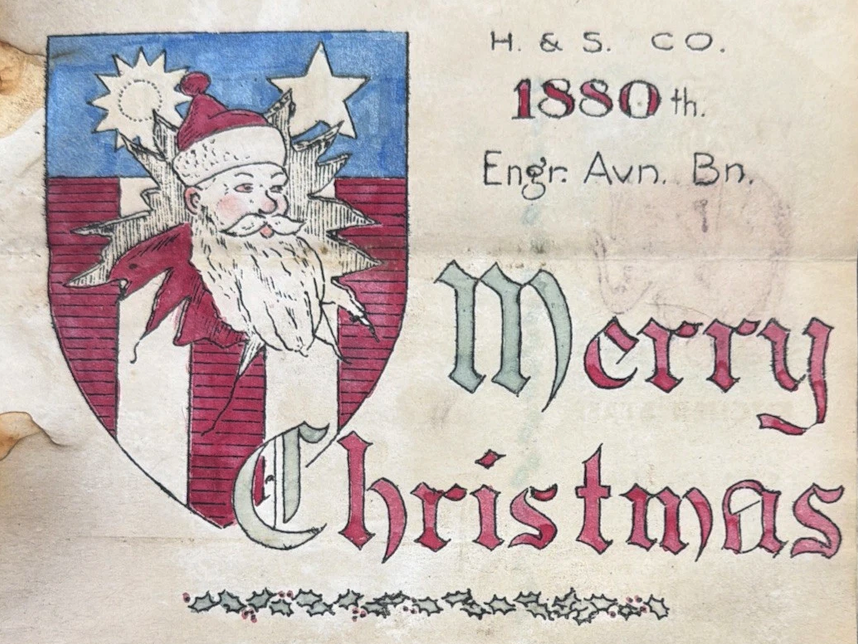 H. & S. CO.
1880th.
Engr. Avn. Bn.
Merry
Christmas